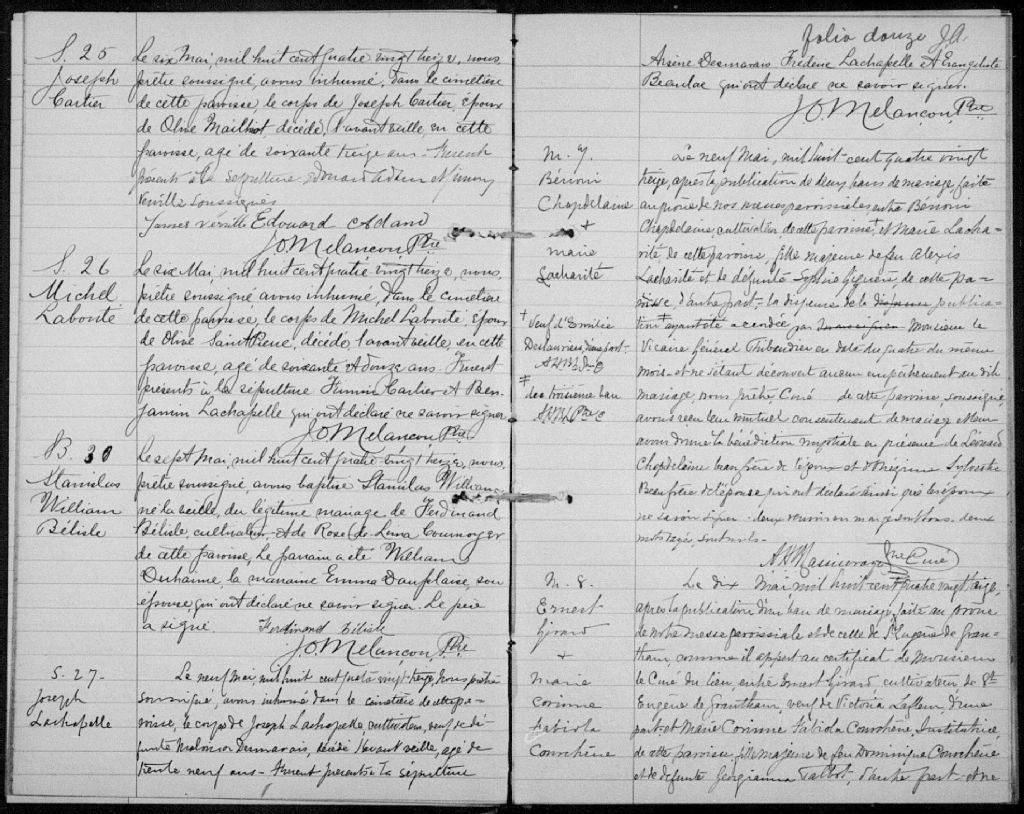 S. 25
Joseph
Cartier
Le six Mai, mil huit cent quatre vingt treize, nous,
prêtre soussigné, avons inhumé, dans le cimetière
de cette paroisse le corps de Joseph Cartier, époux
de Olive Mailhot décédé, l'avant veille, en cette
paroisse, agé de soixante treize ans. Furent
présents à la sépulture Edouard Adam et
Vérville soussignés
James Vérville Edouard Adam
JO Melançon Ptre
S. 26
Michel
Labonté
Le six Mai, mil huit cent quatre vingt treize, nous,
prêtre soussigné avons inhumé, dans le cimetière
de cette paroisse, le corps de Michel Labonté, Epoux
de Olive Saint Pierre, décédé, l'avant veille, en cette
paroisse, agé de soixante et douze ans. Furent
présents à la sépulture Firmin Cartier et Ben-
jamin Lachapelle qui ont déclaré ne savoir signer.
JO Melançon Ptre
B. 30
Stanislas
William
Bélisle
Le sept Mai, mil huit cent quatre vingt treize, nous,
prêtre soussigné, avons baptisé Stanislas William
né la veille, du légitime mariage de Ferdinand
Bélisle, cultivateur, et de Rose de Lima Cournoyer
de cette paroisse, Le parrain a été William
Duhaime la marraine Emma Dauplaise son
épouse, qui ont déclaré ne savoir signer. Le père
a signé. Ferdinand Bélisle
JO Melançon, Ptre
S. 27-
Joseph
Lachapelle
Le neuf Mai, mil huit cent quatre vingt treize, nous prêtre
soussigné, avons inhumé dans le cimetière de cette pa-
roisse, le corps de Joseph Lachapelle, cultivateur, veuf de dé-
funte Desmarais, décédé l'avant veille, agé de
trente neuf ans - Furent présents à la sépulture
folio douze
Arsène Desmarais Frédéric Lachapelle et Evangéliste
Beaulac qui ont déclaré ne savoir signer.
JO. Melançon, Ptre
M. 7.
Bénoni
Chapdelaine
+
Marie
Lacharité
Le neuf Mai, mil huit cent quatre vingt
treize, après la publication de deux bans de mariage, faite
au prône de nos messes paroissiales, entre Bénoni
Chapdelaine, cultivateur de cette paroisse + et Marie Lacha-
rité, de cette paroisse, fille majeure de feu Alexis
Lacharité et de défunte Sophie de cette pa-
roisse, d'autre part, la dispense de la publica-
tion ‡ ayant été accordée par Monsieur le
Vicaire Général Thibaudier en date du quatre du même
mois - et ne s'étant découvert aucun empêchement au dit
mariage, nous prêtre Curé de cette paroisse, soussigné,
avons reçu leur mutuel consentement de mariage et leur
avons donné la bénédiction nuptiale en présence de Léonard
Chapdelaine beau frère de l'époux et d'Onézime Sylvestre
Beau frère de l'épouse qui ont déclaré ainsi que les époux
ne savoir signer - deux en marge sont bons. deux
mots rayés, sont nuls.
+
Veuf d'Emilie
Deslauriers, d'une part-
‡
du troisième ban
Ptre Curé
M. 8.
Ernest
Girard
+
Marie
Corinne
Fabiola
Courchêne
Le dix Mai, mil huit cent quatre vingt treize,
après la publication d'un ban de mariage, faite au prône
de notre messe paroissiale et de celle de St Eugène de Gran-
tham, comme il appert au certificat de Monsieur
le Curé du lieu, entre Ernest Girard cultivateur, de St
Eugène de Grantham, veuf de Victoria Lafleur, d'une
part, et Marie Corinne Fabiola Courchêne, Institutrice,
de cette paroisse, fille majeure de feu Dominique Courchêne
et de défunte Georgianna Talbot, d'autre part - et ne